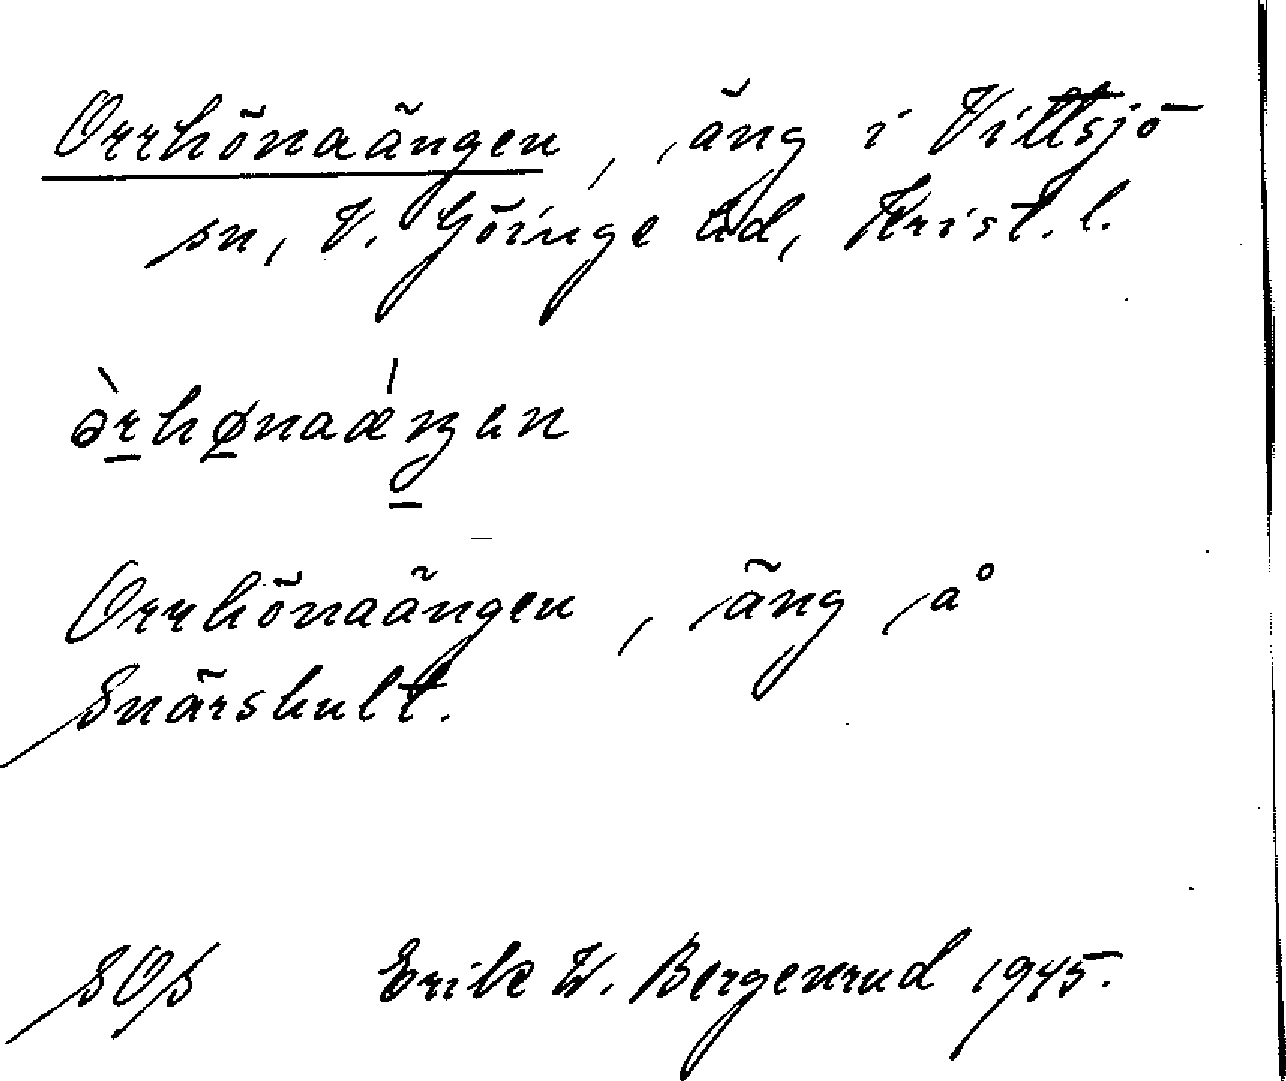 Orrhönaängen, äng i Vittsjö
sn, V. Göinge hd, Krist. l.
ə̀rhønaǽŋen
Orrhönaängen, äng å
Snärshult.
SOS Erik W. Bergenrud 1945.